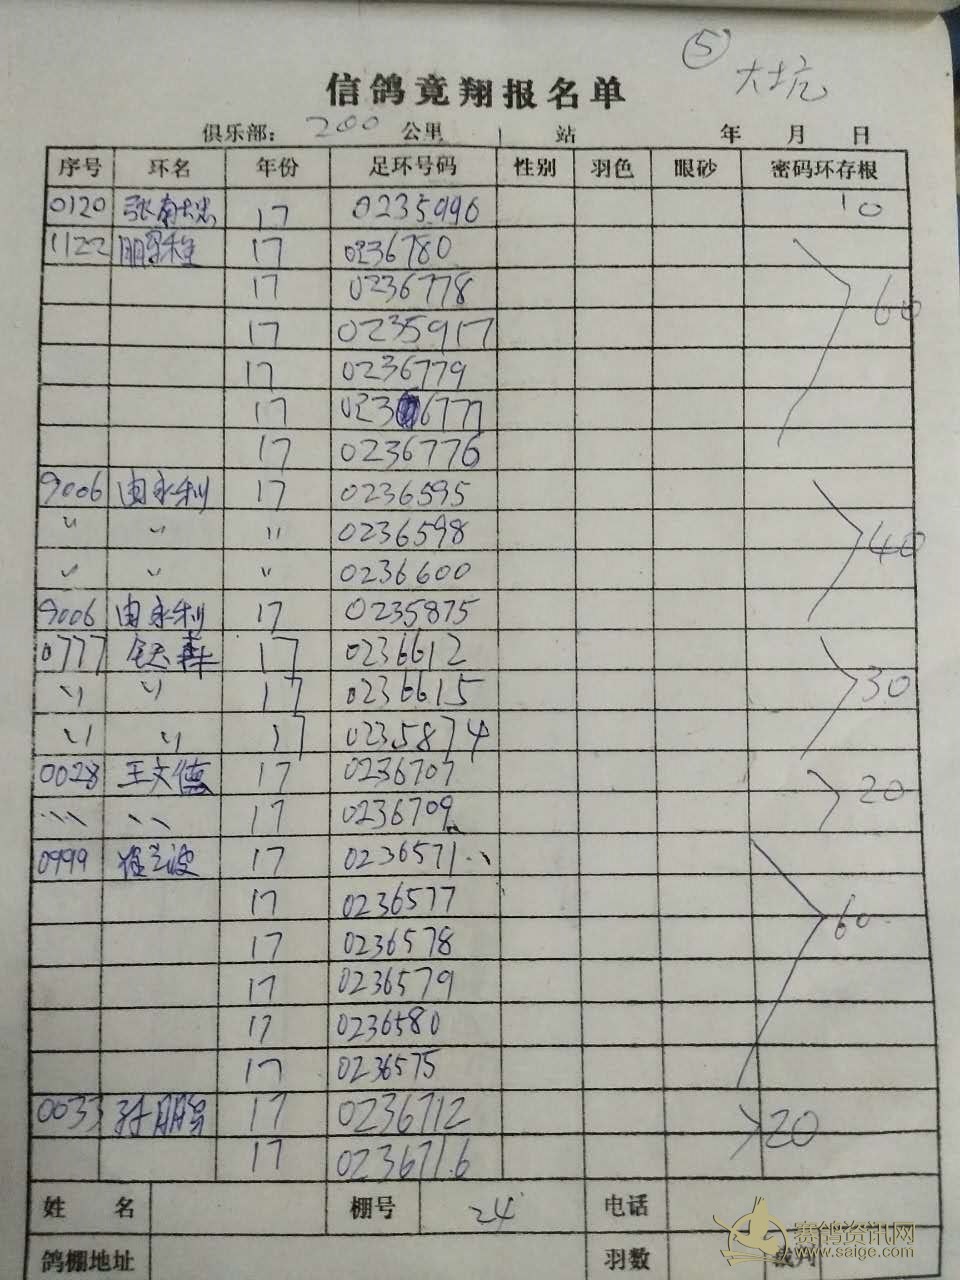 ⑤ 大坑
信鸽竟翔报名单
俱乐部: 200 公里 1 站 年 月 日
序号 环名 年份 足环号码 性别 羽色 眼砂 密码环存根
0120 17 0235996 10
1122 17 0236780
17 0236778 60
17 0235917
17 0236779
17 0236777
17 0236776
9006 由永利 17 0236595
〃 〃 〃 0236598 40
〃 〃 〃 0236600
9006 由永利 17 0235875
0777 17 0236612
〃 〃 17 0236615 30
〃 〃 17 0235874
0028 王文德 17 0236707 20
〃 〃 17 0236709
0999 17 0236571
17 0236577 60
17 0236578
17 0236579
17 0236580
17 0236575
0033 孙鹏 17 0236712 20
17 0236716
姓 名 棚号 24 电话
鸽棚地址 羽数 裁判
赛鸽资讯网
www.saige.com